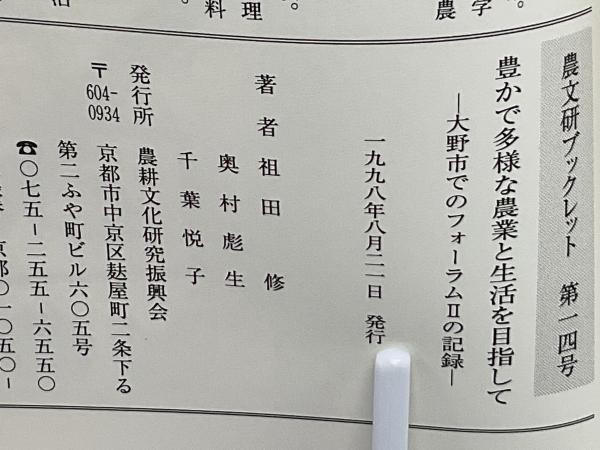 農文研ブックレット 第一四号
豊かで多様な農業と生活を目指して
―大野市でのフォーラムⅡの記録―
一九九八年八月二一日 発行
著者 祖田 修
奥村彪生
千葉悦子
発行所 農耕文化研究振興会
〒604-0934
京都市中京区麸屋町二条下る
第二ふや町ビル六〇五号
☎〇七五-二五五-六五五〇